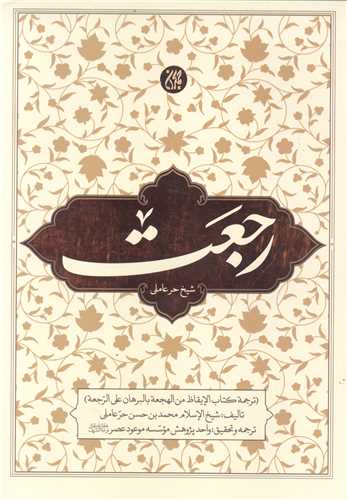 رجعت
شیخ حر عاملی
(ترجمهٔ کتاب الإیقاظ من الهجعة بالبرهان علی الرّجعة)
تألیف: شیخ الإسلام محمد بن حسن حرّ عاملی
ترجمه و تحقیق: واحد پژوهش مؤسّسه موعود عصر